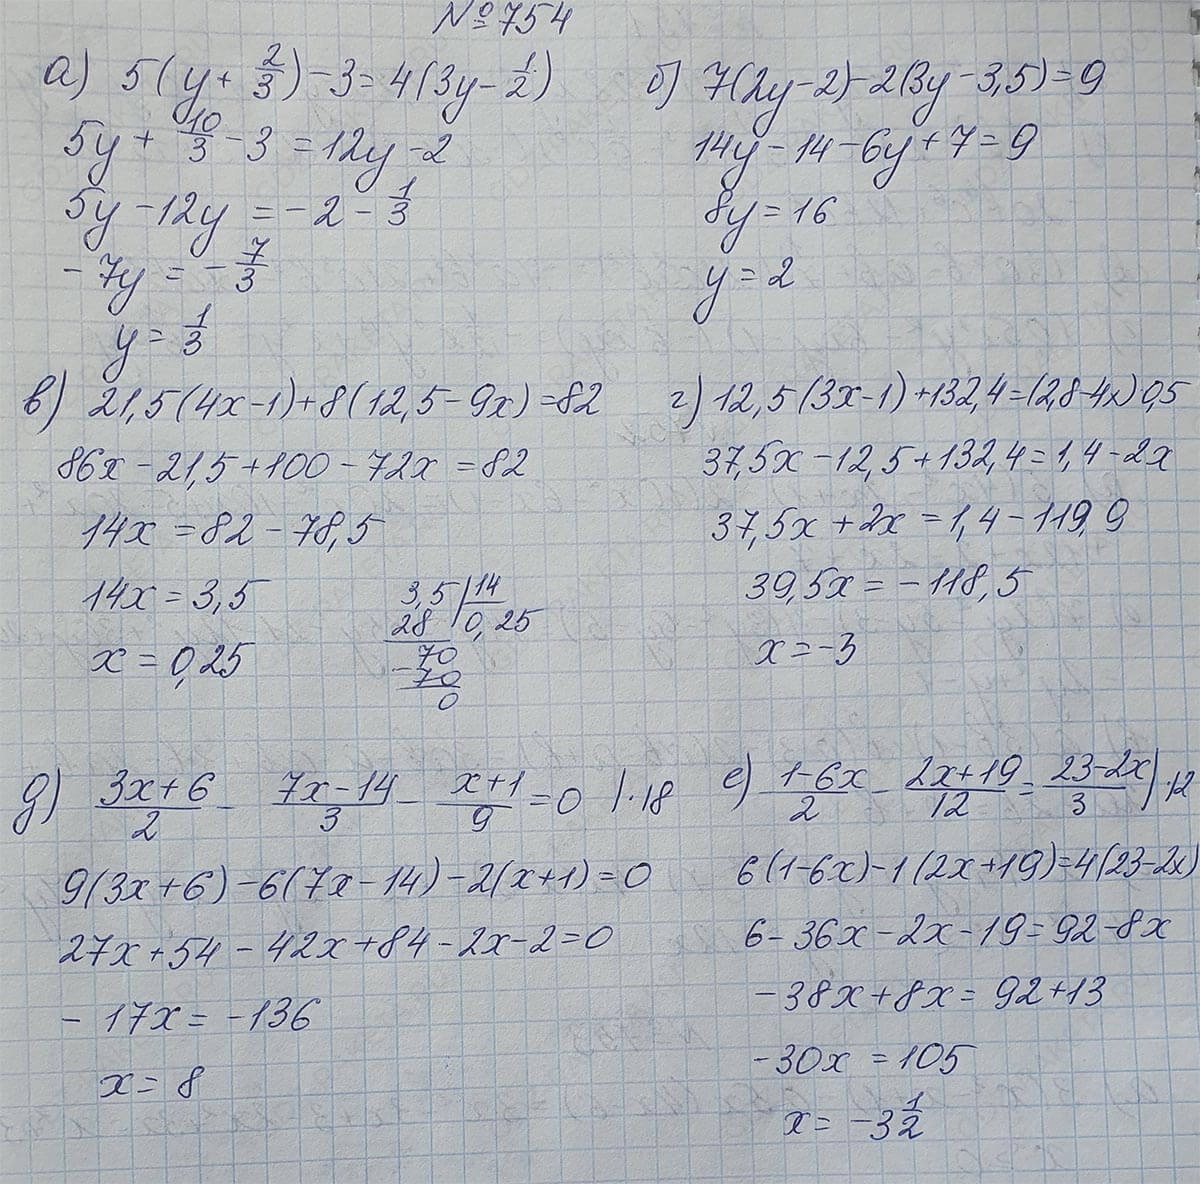 № 754
а) 5(y + 2/3) - 3 = 4(3y - 1/2)
5y + 10/3 - 3 = 12y - 2
5y - 12y = -2 - 1/3
-7y = -7/3
y = 1/3
б) 7(2y - 2) - 2(3y - 3,5) = 9
14y - 14 - 6y + 7 = 9
8y = 16
y = 2
в) 21,5(4x - 1) + 8(12,5 - 9x) = 82
86x - 21,5 + 100 - 72x = 82
14x = 82 - 78,5
14x = 3,5
x = 0,25
3,5 | 14
28 | 0,25
70
- 70
0
г) 12,5(3x - 1) + 132,4 = (2,8 - 4x) 0,5
37,5x - 12,5 + 132,4 = 1,4 - 2x
37,5x + 2x = 1,4 - 119,9
39,5x = -118,5
x = -3
д) (3x + 6)/2 - (7x - 14)/3 - (x + 1)/9 = 0 | · 18
9(3x + 6) - 6(7x - 14) - 2(x + 1) = 0
27x + 54 - 42x + 84 - 2x - 2 = 0
-17x = -136
x = 8
е) (1 - 6x)/2 - (2x + 19)/12 = (23 - 2x)/3 | · 12
6(1 - 6x) - 1(2x + 19) = 4(23 - 2x)
6 - 36x - 2x - 19 = 92 - 8x
-38x + 8x = 92 + 13
-30x = 105
x = -3 1/2